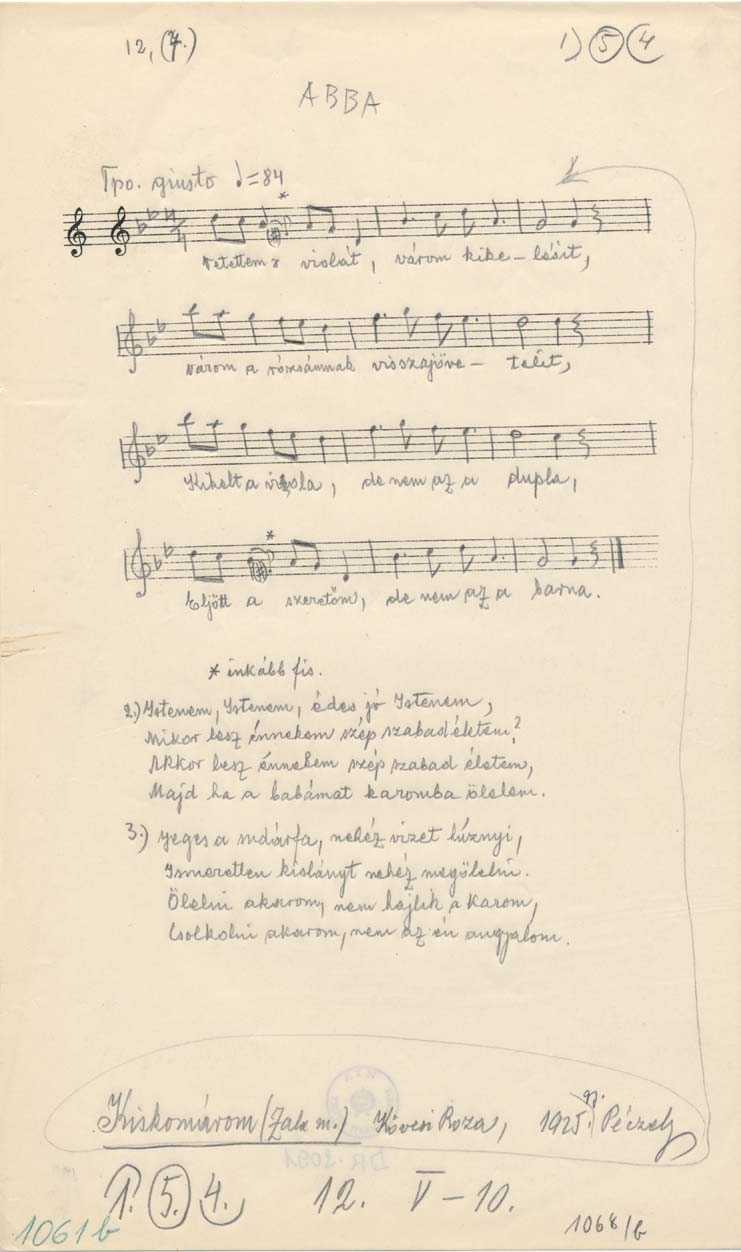 12, (7.)
1) 5 4
ABBA
Tpo. giusto ♩=84
*
Vetettem violát, várom kikelésit,
várom a rózsámnak visszajövetelit,
Kikelt a viola, de nem az a dupla,
*
Eljött a szeretőm, de nem az a barna.
* inkább fis.
2.) Istenem, Istenem, édes jó Istenem,
Mikor lesz énnekem szép szabad életem?
Akkor lesz énnekem szép szabad életem,
Majd ha a babámat karomba ölelem.
3.) Jeges a sudárfa, nehéz vizet húznyi,
Ismeretlen kislányt nehéz megölelni.
Ölelni akarom, nem hajlik a karom,
Csolkolni akarom, nem az én angyalom.
Kiskomárom (Zala m.) Kövesi Róza, 1925. Péczely
1. 5. 4. 12. V-10.
1061 b
1068/b